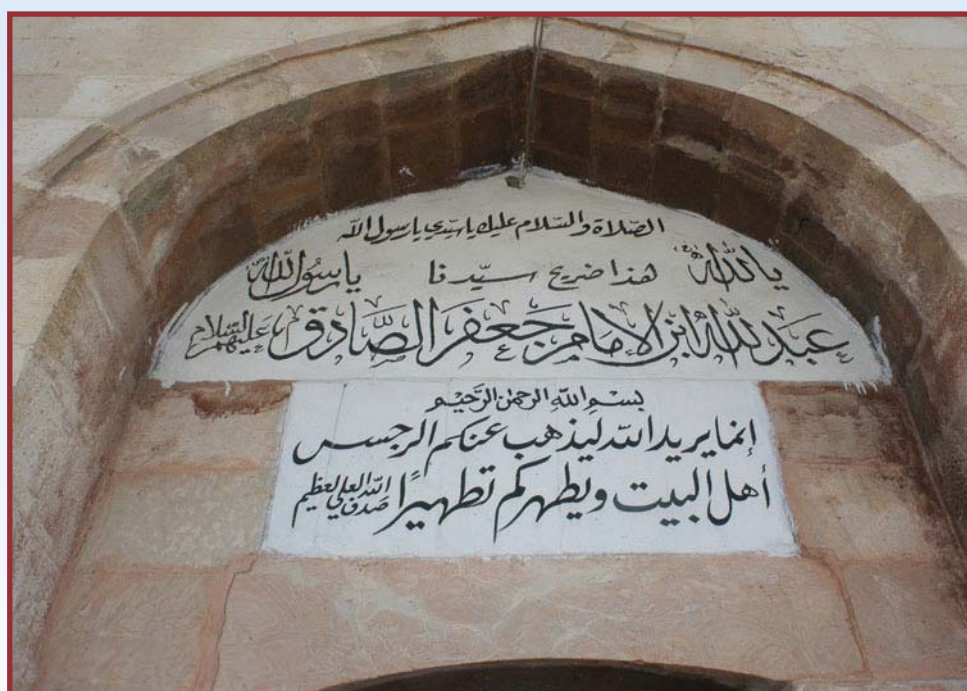 الصّلاة والسّلام عليك يا سيّدي يا رسول الله
يا الله هذا ضريح سيّدنا يا رسُول الله
عَبدُ اللهُ ابن الإمَام جَعفَر الصَّادِق عَليهم السَّلام
بِسْمِ اللهِ الرحمٰن الرَّحِيْم
إنما يريد الله ليذهب عنكم الرجس
أهل البيت ويطهركم تطهيرًا صدق الله العلي العظيم